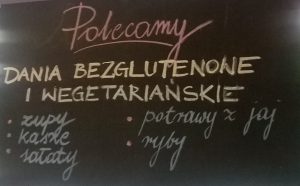 Polecamy
DANIA BEZGLUTENOWE
I WEGETARIAŃSKIE
• zupy
• kasze
• sałaty
• potrawy z jaj
• ryby